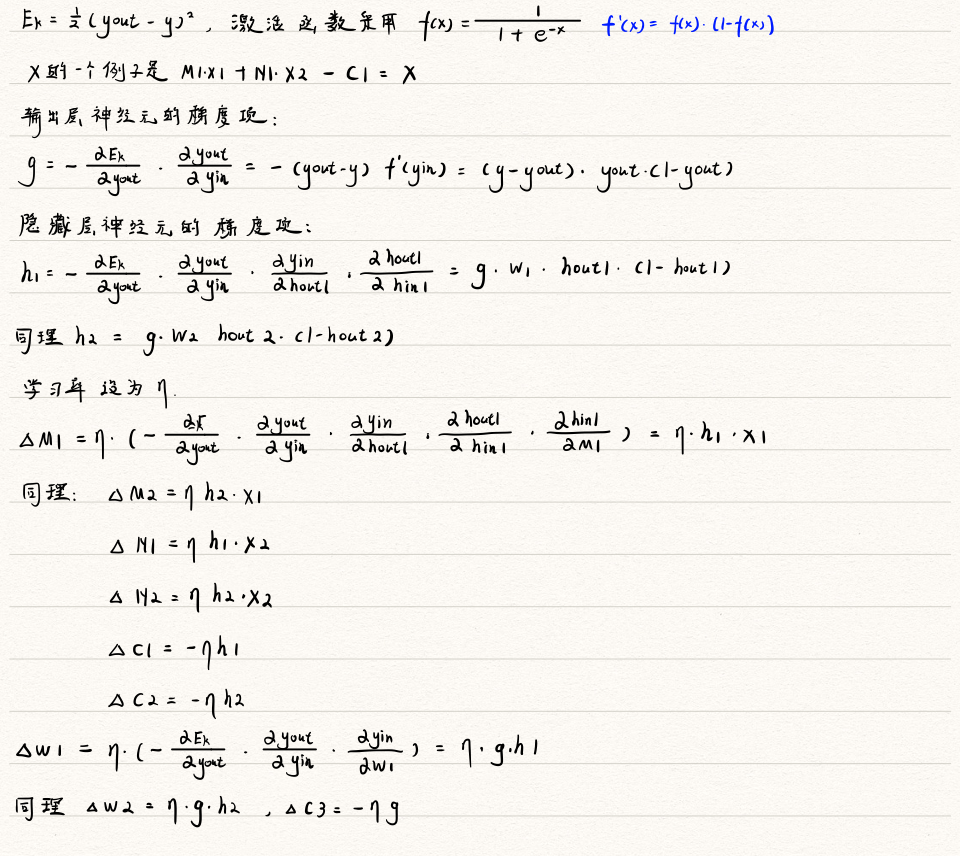 Ek = 1/2 (yout - y)², 激活函数是用 f(x) = 1/(1 + e^-x) f'(x) = f(x)·(1-f(x))
X的一个例子是 M1·X1 + N1·X2 - C1 = X
输出层神经元的梯度项:
g = - ∂Ek/∂yout · ∂yout/∂yin = - (yout-y) f'(yin) = (y-yout)· yout·(1-yout)
隐藏层神经元的梯度项:
h1 = - ∂Ek/∂yout · ∂yout/∂yin · ∂yin/∂hout1 · ∂hout1/∂hin1 = g · W1 · hout1 · (1-hout1)
同理 h2 = g·W2 hout2·(1-hout2)
学习率设为 η.
△M1 = η·(- ∂Ek/∂yout · ∂yout/∂yin · ∂yin/∂hout1 · ∂hout1/∂hin1 · ∂hin1/∂M1) = η·h1·X1
同理: △M2 = η h2·X1
△N1 = η h1·X2
△N2 = η h2·X2
△C1 = -ηh1
△C2 = -ηh2
△W1 = η·(- ∂Ek/∂yout · ∂yout/∂yin · ∂yin/∂W1) = η·g·h1
同理 △W2 = η·g·h2 , △C3 = -ηg